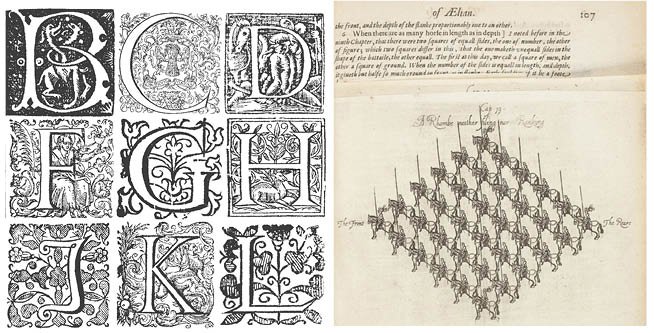 B C D
F G H
J K L
of Ælian. 107
the front, and the depth of the flanke proportionably one to an other.
6 When there are as many horse in length as in depth] I noted before in the
ninth Chapter, that there were two squares of equall sides, the one of number, the other
of figure; which two squares differ in this, that the one maketh equall sides in the
shape of the battaile, the other equall. The first at this day, we call a square of men, the
other a square of ground. When the number of the sides is equall in length, and depth,
it giueth but halfe so much ground in
Cap
A Rhombe neither filing nor Ranking
The Front The Reare